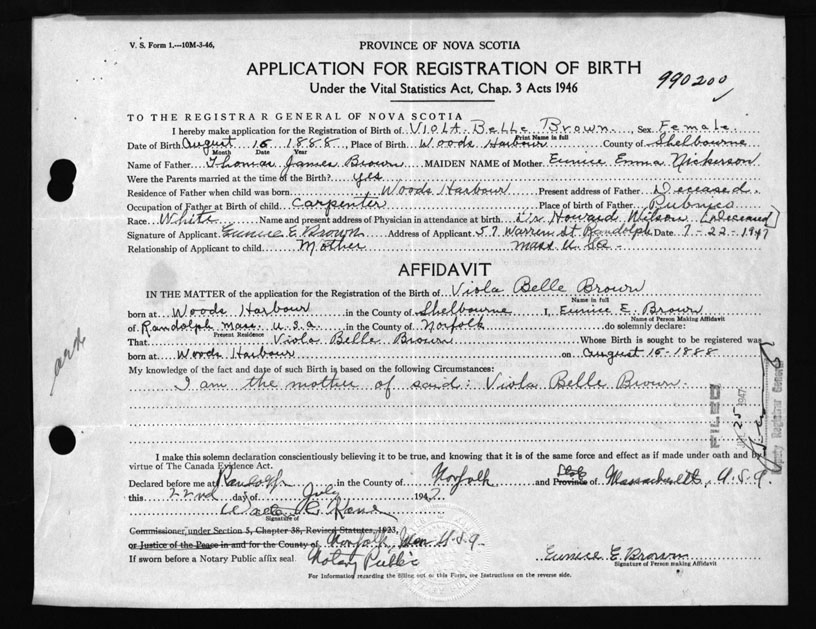 V. S. Form 1.---10M-3-46,
PROVINCE OF NOVA SCOTIA
APPLICATION FOR REGISTRATION OF BIRTH
Under the Vital Statistics Act, Chap. 3 Acts 1946
990200
TO THE REGISTRAR GENERAL OF NOVA SCOTIA
I hereby make application for the Registration of Birth of Viola Belle Brown Sex Female.
Print Name in full
Date of Birth August 15 1888, Place of Birth Woods Harbour County of Shelbourne
Month Date Year
Name of Father Thomas James Brown MAIDEN NAME of Mother Eunice Emma Nickerson
Were the Parents married at the time of the Birth? yes
Residence of Father when child was born Woods Harbour Present address of Father Deceased.
Occupation of Father at Birth of child Carpenter Place of birth of Father Pubnico
Race White Name and present address of Physician in attendance at birth Dr Howard Wilson [Deceased]
Signature of Applicant Eunice E Brown Address of Applicant 57 Warren St Randolph Date 7-22-1947
Relationship of Applicant to child Mother Mass U.S.a-
AFFIDAVIT
IN THE MATTER of the application for the Registration of the Birth of Viola Belle Brown
Name in full
born at Woods Harbour in the County of Shelbourne I, Eunice E. Brown
Name of Person Making Affidavit
of Randolph Mass. U.S.a. in the County of Norfolk do solemnly declare:
Present Residence
That Viola Belle Brown Whose Birth is sought to be registered was
born at Woods Harbour on August 15-1888
My knowledge of the fact and date of such Birth is based on the following Circumstances:
I am the mother of said: Viola Belle Brown.
FILED
25 1947
Deputy Registrar General
I make this solemn declaration conscientiously believing it to be true, and knowing that it is of the same force and effect as if made under oath and by
virtue of The Canada Evidence Act.
Declared before me at Randolph in the County of Norfolk and Province of State Massachusetts, U.S.A.
this 22nd day of July 1947.
Walter R. Kane
Signature of
Commissioner, under Section 5, Chapter 38, Revised Statutes, 1923,
or Justice of the Peace in and for the County of Norfolk, Mass U.S.A.
If sworn before a Notary Public affix seal. Notary Public Eunice E Brown
Signature of Person making Affidavit
For Information regarding the filling out of this Form, see Instructions on the reverse side.